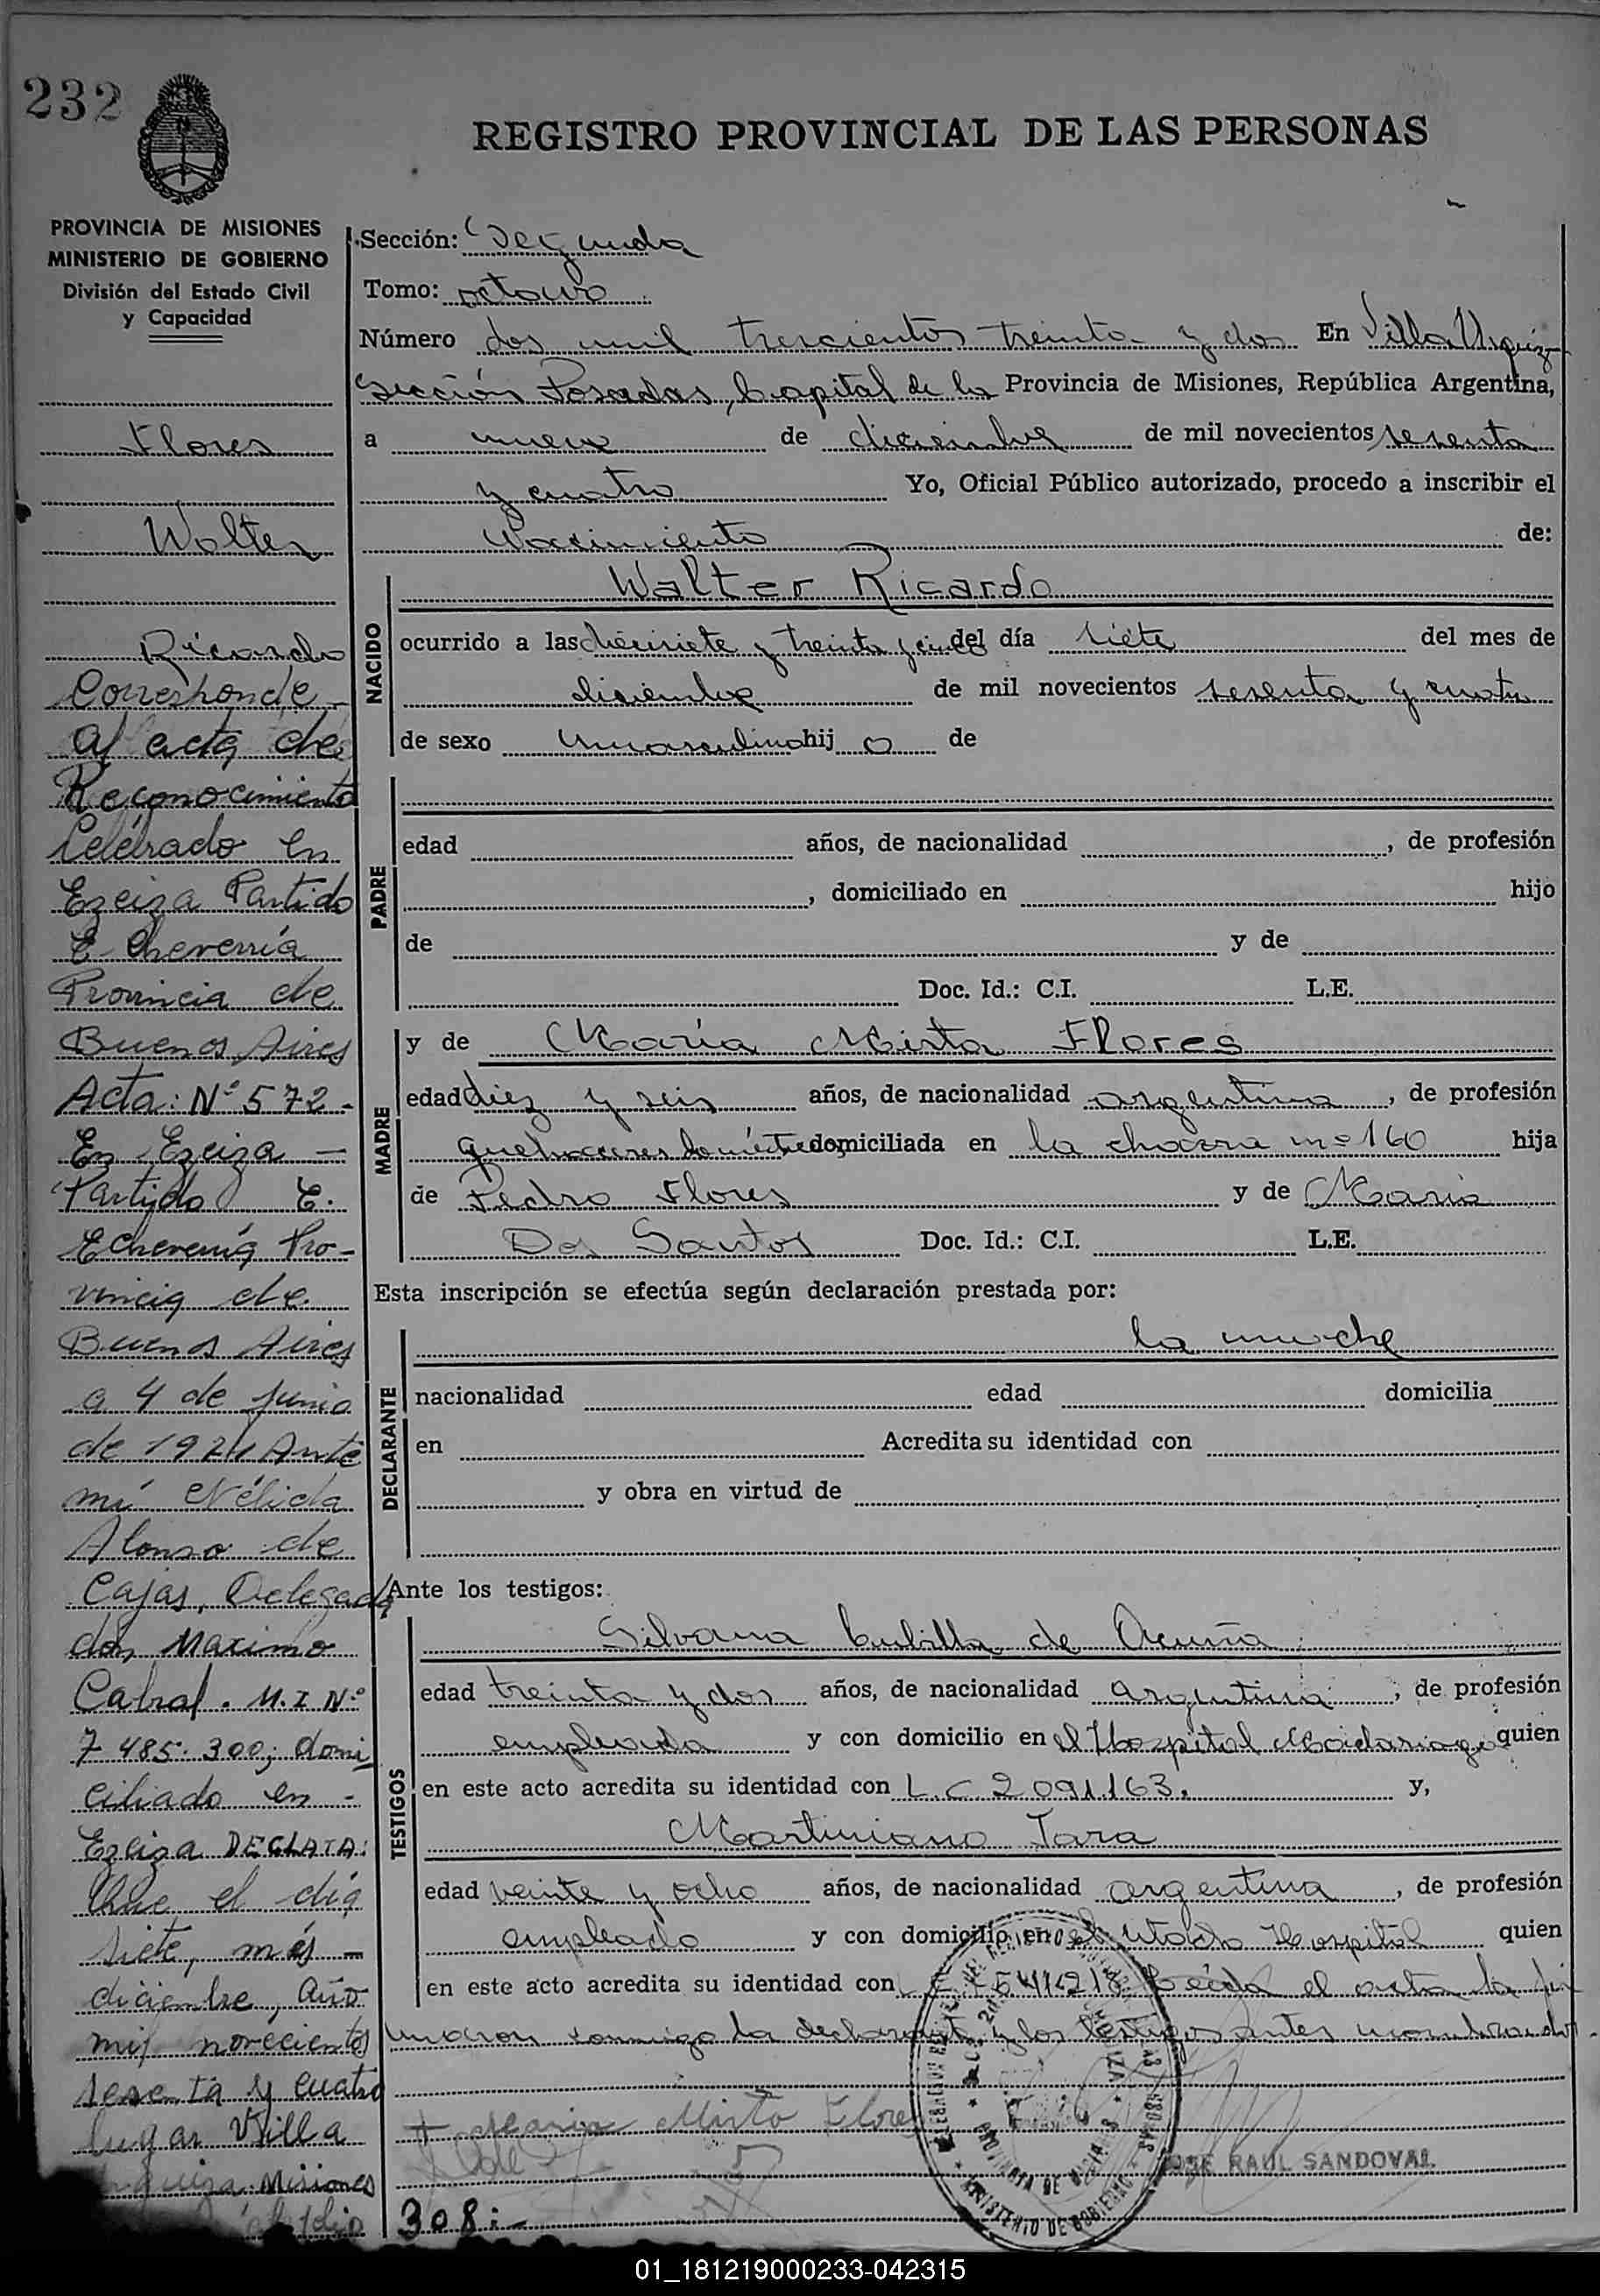 232
REGISTRO PROVINCIAL DE LAS PERSONAS
PROVINCIA DE MISIONES
MINISTERIO DE GOBIERNO
División del Estado Civil
y Capacidad
Flores
Walter
Ricardo
Corresponde
al acta de
Reconocimiento
Celebrado en
Ezeiza Partido
E. Cheverría
Provincia de
Buenos Aires
Acta: Nº 572.-
En Ezeiza —
Partido E.
Echeverría Pro-
vincia de
Buenos Aires
a 4 de junio
de 1971 Ante
mí Nélida
Alonso de
Cajas, Delegada
don Maximo
Cabral. M.I Nº
7 485. 300; domi
ciliado en -
Ezeiza DECLARA:
Que el día
siete, mes —
diciembre, año
mil novecientos
sesenta y cuatro
lugar Villa
Urquiza Misiones
al folio 308:-
Sección: Segunda
Tomo: octavo
Número dos mil trescientos treinta y dos En Villa Urquiza
Sección Posadas, Capital de la Provincia de Misiones, República Argentina,
a nueve de diciembre de mil novecientos sesenta
y cuatro Yo, Oficial Público autorizado, procedo a inscribir el
Nacimiento de:
NACIDO
Walter Ricardo
ocurrido a las diecisiete y treinta y cinco del día siete del mes de
diciembre de mil novecientos sesenta y cuatro
de sexo masculino hij o de
PADRE
edad años, de nacionalidad , de profesión
, domiciliado en hijo
de y de
Doc. Id.: C.I. L.E.
MADRE
y de María Mirta Flores
edad diez y seis años, de nacionalidad argentina, de profesión
quehaceres domésticos domiciliada en la chacra nº 160 hija
de Pedro Flores y de María
Dos Santos Doc. Id.: C.I. L.E.
Esta inscripción se efectúa según declaración prestada por:
DECLARANTE
la madre
nacionalidad edad domicilia
en Acredita su identidad con
y obra en virtud de
Ante los testigos:
TESTIGOS
Silvana Cubilla de Acuña
edad treinta y dos años, de nacionalidad argentina, de profesión
empleada y con domicilio en el Hospital Madariaga quien
en este acto acredita su identidad con L.C. 2091.163. y,
Martiniano Jara
edad veinte y ocho años, de nacionalidad argentina, de profesión
empleado y con domicilio en el citado Hospital quien
en este acto acredita su identidad con Leída el acta la fir
maron conmigo la declarante y los testigos antes nombrados.-
Maria Mirta Flores
JOSE RAUL SANDOVAL
01_181219000233-042315